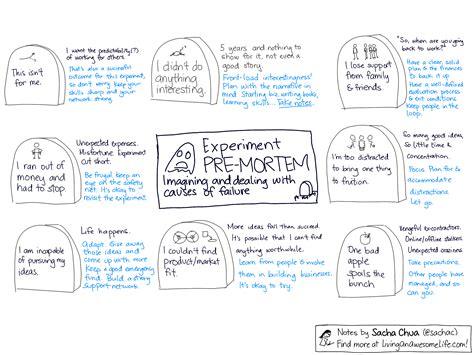 This isn't
for me.
I want the predictability(?)
of working for others
That's also a successful
outcome for this experiment,
so don't worry. Keep your
skills sharp and your
network strong
I didn't do
anything
interesting.
5 years and nothing to
show for it, not even a
good story.
Front-load interestingness!
Plan with the narrative in
mind. Starting biz, writing books,
learning skills... Take notes.
I lose support
from family
& friends.
"So, when are you going
back to work?"
Have a clear, solid
plan & the finances
to back it up
Have a well-defined
evaluation process
& exit conditions
Keep people in the
loop.
I ran out of
money and
had to stop.
Unexpected expenses.
Misfortune. Experiment
cut short.
Be frugal. Keep an
eye on the safety
net. It's okay to
revisit the experiment.
Experiment
PRE-MORTEM
Imagining and dealing with
causes of failure
I'm too distracted
to bring one thing
to fruition.
So many good ideas,
so little time &
concentration.
Focus. Plan for &
accommodate
distractions.
Let go.
I am incapable
of pursuing my
ideas.
Life happens.
Adapt. Give away
those ideas and
come up with more
Keep a good emergency
fund. Build a strong
support network.
I couldn't find
product/market
fit.
More ideas fail than succeed.
It's possible that I can't find
anything worthwhile.
Learn from people & involve
them in building businesses.
It's okay to try.
One bad
apple
spoils the
bunch.
Vengeful ex-contractors.
Online/offline stalkers.
Unexpected crossings
Take precautions.
Other people
have managed, and
so can you.
Notes by Sacha Chua (@sachac)
Find more at LivingAnAwesomeLife.com!